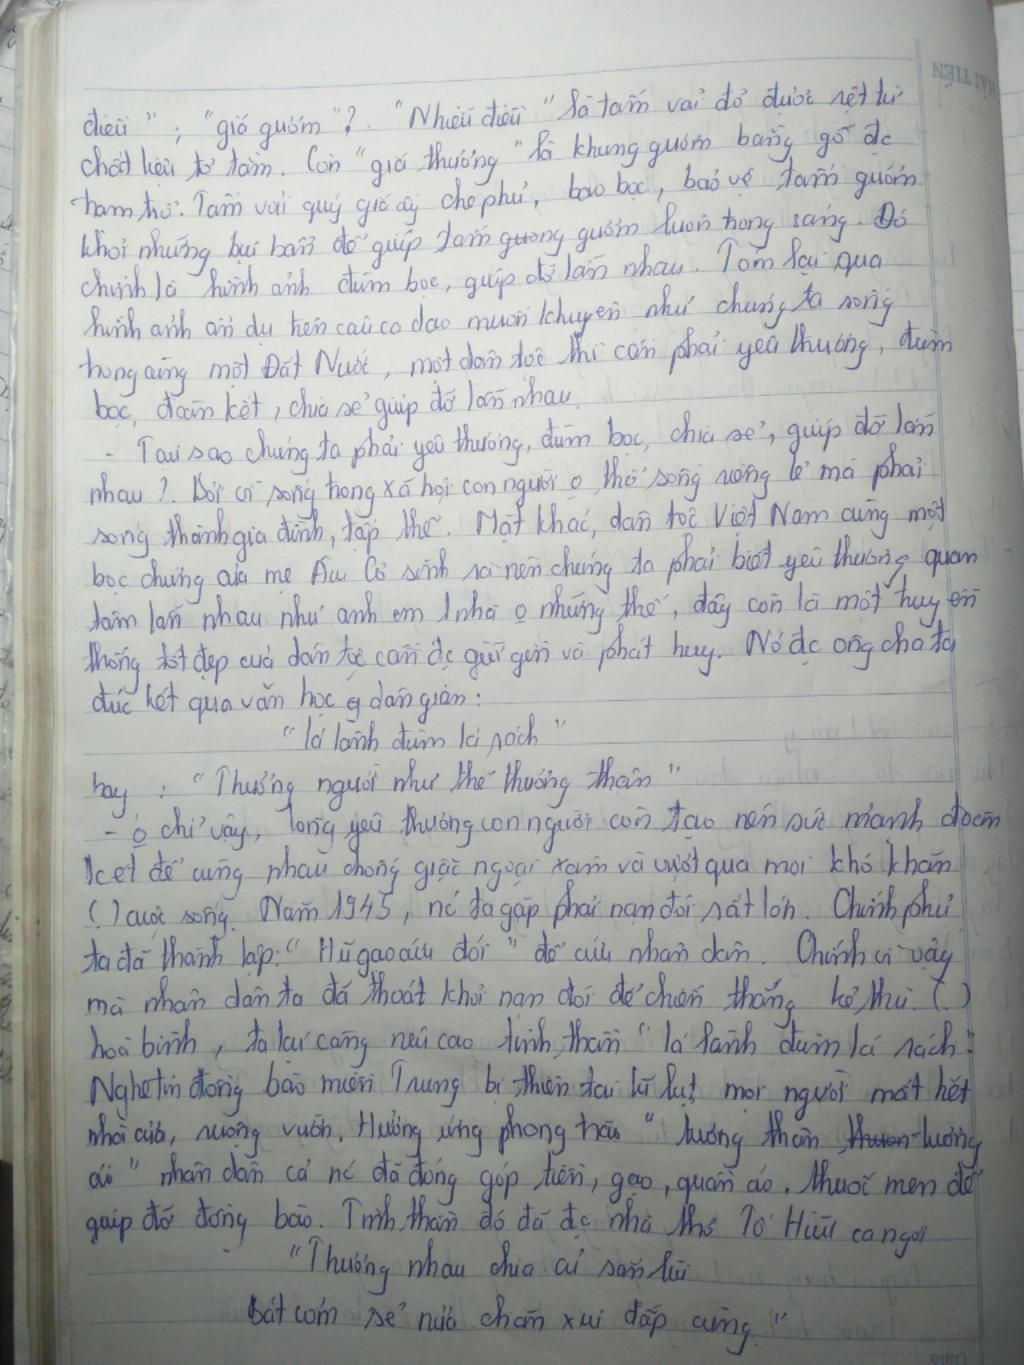 điều" ; "giá gương"? "Nhiễu điều" là tấm vải đỏ được dệt từ
chất liệu tơ tằm. Còn "giá thương" là khung gương bằng gỗ đc
chạm trổ. Tấm vải quý giá ấy che phủ, bao bọc, bảo vệ tấm gương
khỏi những bụi bẩn để giúp tấm gương gương luôn trong sáng. Đó
chính là hình ảnh đùm bọc, giúp đỡ lẫn nhau. Tóm lại qua
hình ảnh ẩn dụ trên câu ca dao muốn khuyên như chúng ta sống
trong cùng một Đất Nước, một dân tộc thì cần phải yêu thương, đùm
bọc, đoàn kết, chia sẻ giúp đỡ lẫn nhau.
- Tại sao chúng ta phải yêu thương, đùm bọc, chia sẻ, giúp đỡ lẫn
nhau ?. Bởi vì sống trong xã hội con người o thể sống riêng lẻ mà phải
sống thành gia đình, tập thể. Mặt khác, dân tộc Việt Nam cùng một
bọc chứng của mẹ Âu Cơ sinh ra nên chúng ta phải biết yêu thương quan
tâm lẫn nhau như anh em 1 nhà o những thế, đây còn là một truyền
thống tốt đẹp của dân tộc cần đc giữ gìn và phát huy. Nó đc ông cha ta
đúc kết qua văn học dân gian:
"lá lành đùm lá rách"
hay : "Thương người như thể thương thân"
- o chỉ vậy, lòng yêu thương con người còn tạo nên sức mạnh đoàn
kết để cùng nhau chống giặc ngoại xâm và vượt qua mọi khó khăn
( ) cuộc sống. Năm 1945, nc ta gặp phải nạn đói rất lớn. Chính phủ
ta đã thành lập: "Hũ gạo cứu đói" để cứu nhân dân. Chính vì vậy
mà nhân dân ta đã thoát khỏi nạn đói để chiến thắng kẻ thù. ( )
hoà bình, ta lại càng nêu cao tinh thần "lá lành đùm lá rách".
Nghe tin đồng bào miền Trung bị thiên tai lũ lụt mọi người mất hết
nhà cửa, ruộng vườn. Hưởng ứng phong trào "tương thân thươn tương
ái" nhân dân cả nc đã đóng góp tiền, gạo, quần áo, thuốc men để
giúp đỡ đồng bào. Tinh thần đó đã đc nhà thơ Tố Hữu ca ngợi
"Thương nhau chia củ sắn lùi
Bát cơm sẻ nửa chăn xui đắp cùng."